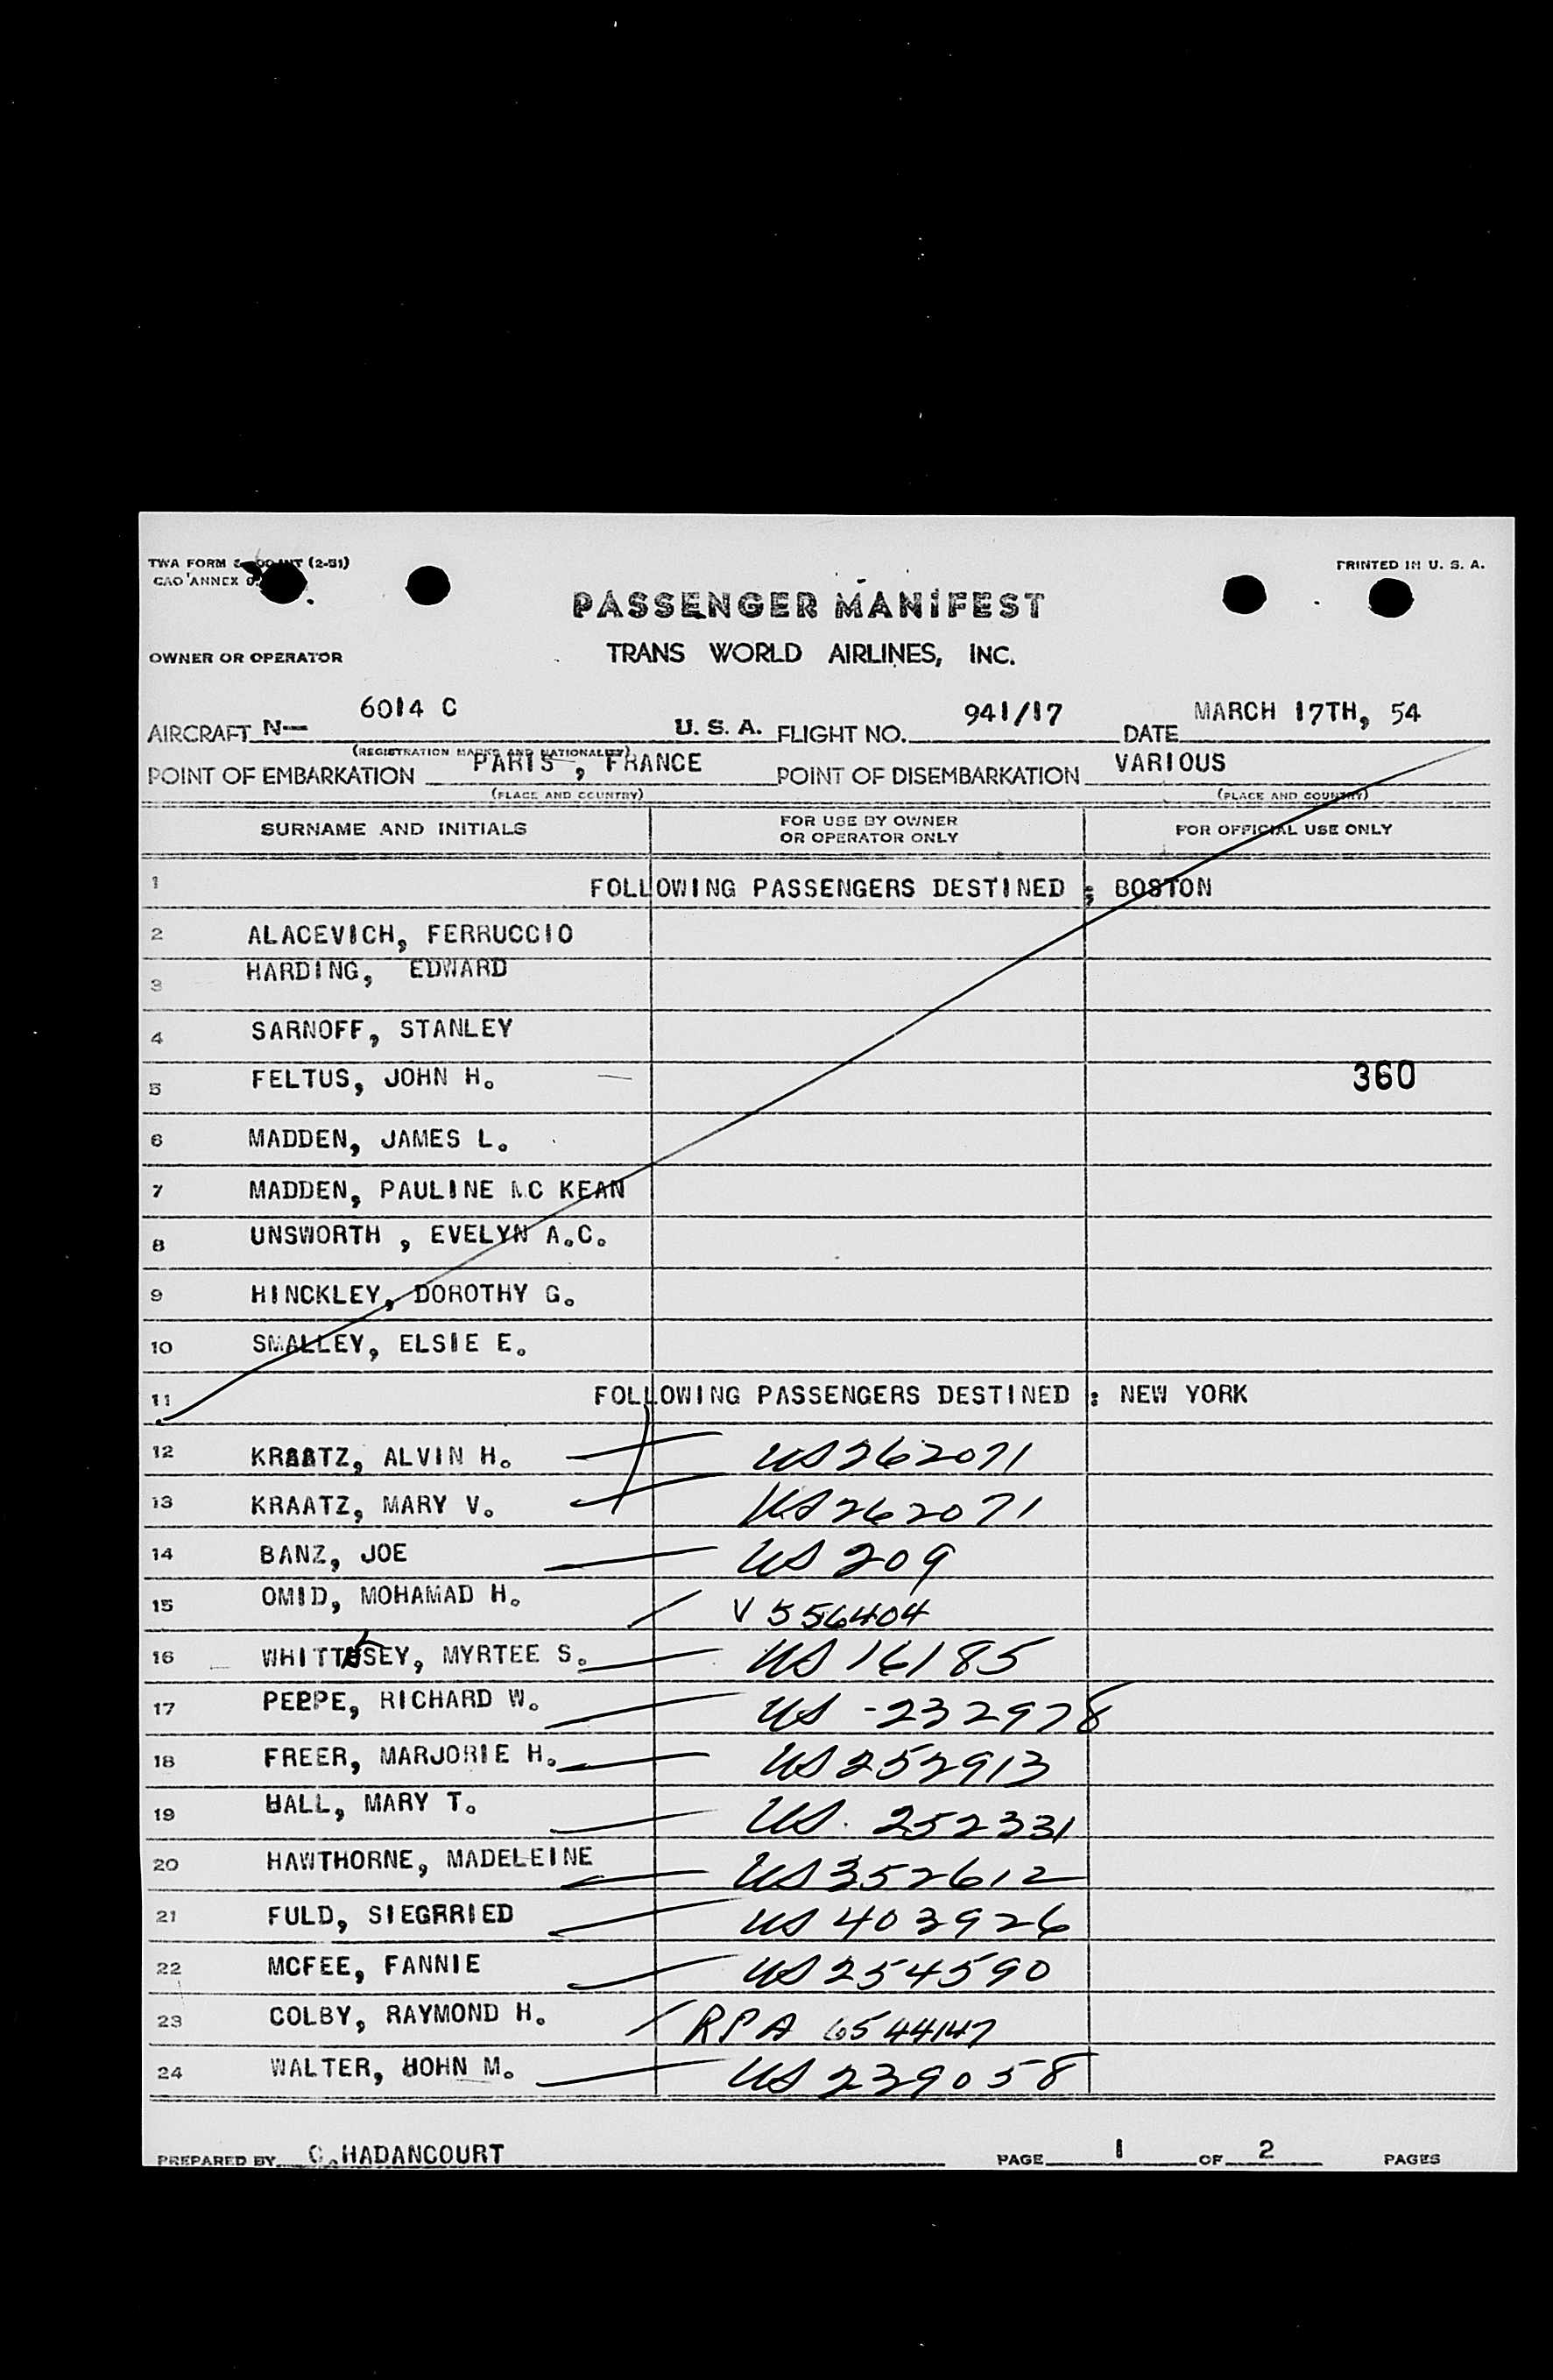 TWA FORM (2-51)
PRINTED IN U. S. A.
CAO ANNEX 9,
PASSENGER MANIFEST
OWNER OR OPERATOR TRANS WORLD AIRLINES, INC.
AIRCRAFT N— 6014 C U. S. A. FLIGHT NO. 941/17 DATE MARCH 17TH, 54
(REGISTRATION MARKS AND NATIONALITY)
POINT OF EMBARKATION PARIS , FRANCE POINT OF DISEMBARKATION VARIOUS
(PLACE AND COUNTRY) (PLACE AND COUNTRY)
SURNAME AND INITIALS FOR USE BY OWNER OR OPERATOR ONLY FOR OFFICIAL USE ONLY
1 FOLLOWING PASSENGERS DESTINED ; BOSTON
2 ALACEVICH, FERRUCCIO
3 HARDING, EDWARD
4 SARNOFF, STANLEY
5 FELTUS, JOHN H. 360
6 MADDEN, JAMES L.
7 MADDEN, PAULINE MC KEAN
8 UNSWORTH , EVELYN A.C.
9 HINCKLEY, DOROTHY G.
10 SMALLEY, ELSIE E.
11 FOLLOWING PASSENGERS DESTINED : NEW YORK
12 KRAATZ, ALVIN H. US262071
13 KRAATZ, MARY V. US262071
14 BANZ, JOE US 209
15 OMID, MOHAMAD H. V 556404
16 WHITTESEY, MYRTEE S. US 16185
17 PEPPE, RICHARD W. US -232978
18 FREER, MARJORIE H. US252913
19 HALL, MARY T. US. 252331
20 HAWTHORNE, MADELEINE US352612
21 FULD, SIEGRRIED US 403926
22 MCFEE, FANNIE US254590
23 COLBY, RAYMOND H. RPA 6544147
24 WALTER, JOHN M. US 239058
PREPARED BY C.HADANCOURT PAGE 1 OF 2 PAGES